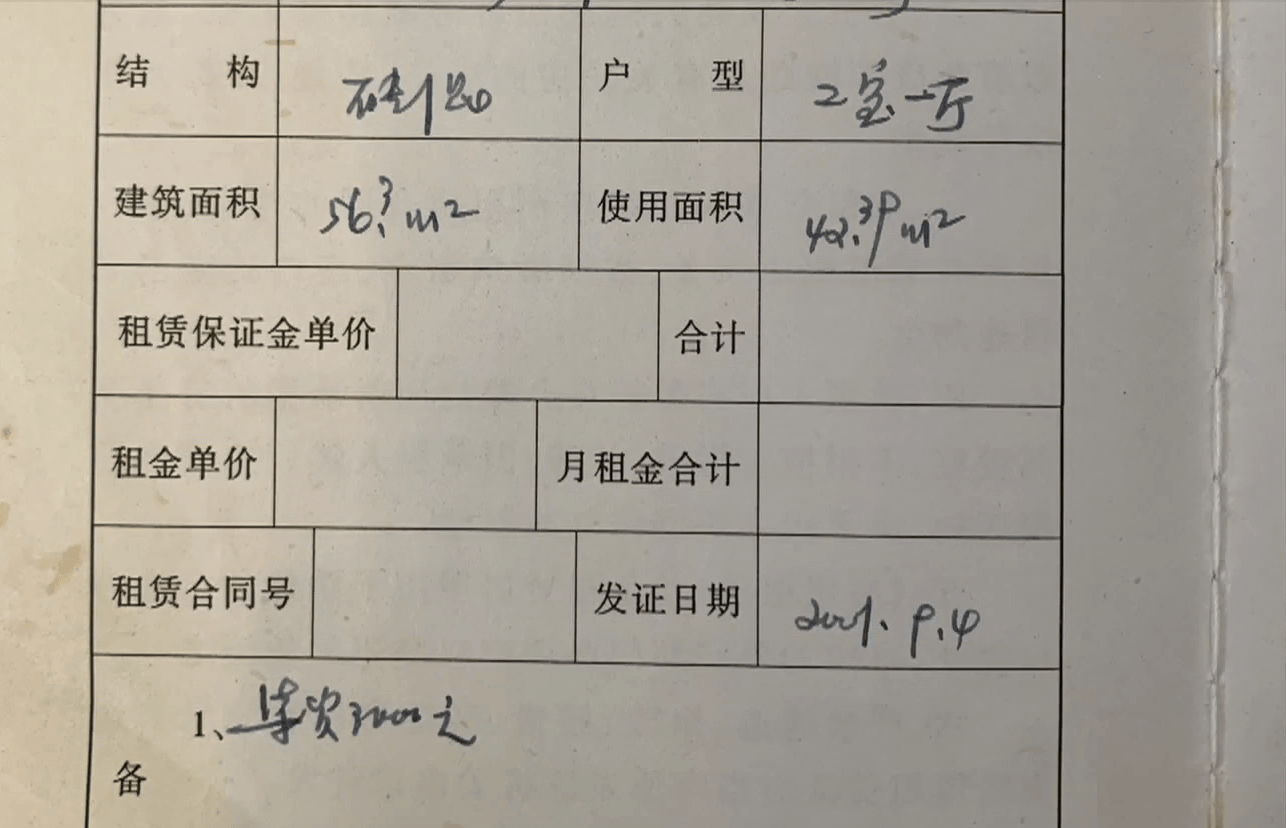 结构 砖混 户型 2室一厅
建筑面积 56.3m² 使用面积 42.39m²
租赁保证金单价 合计
租金单价 月租金合计
租赁合同号 发证日期 2001.9.4
1、集资3000元
备